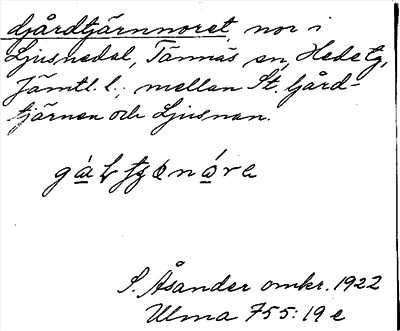 djårdtjärnnoret, nor i
Ljusnedal, Tännäs sn, Hede tg,
Jämtl. l.; mellan St. Gård-
tjärnen och Ljusnan.
S. Åsander omkr. 1922
Ulma 755:19 e